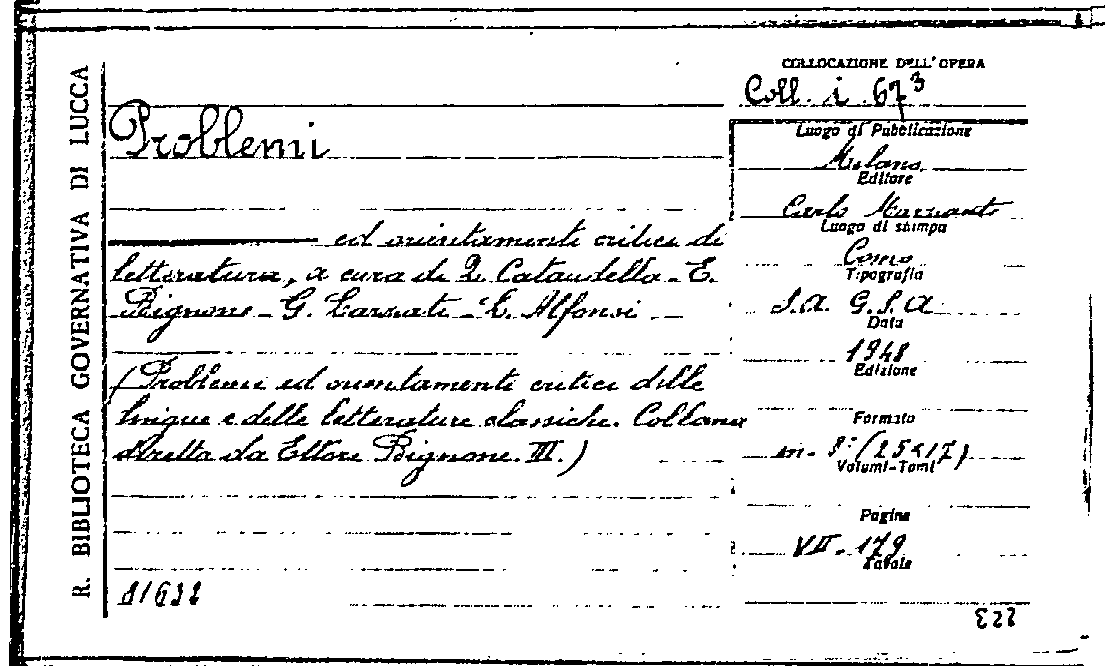 R. BIBLIOTECA GOVERNATIVA DI LUCCA
COLLOCAZIONE DELL'OPERA
Coll. i. 67³
Problemi
Luogo di Pubblicazione
Milano
Editore
Carlo Marzorati
Luogo di stampa
Como
Tipografia
S.A. G.S.A
Data
1948
Edizione
Formato
in-8° (25x17)
Volumi-Tomi
Pagine
VII-179
Tavole
ed orientamenti critici di
letteratura, a cura di Q. Cataudella - E.
Bignone - G. - L. Alfonsi
(Problemi ed orientamenti critici delle
lingue e delle letterature classiche. Collana
diretta da Ettore Bignone. III.)
81622
322